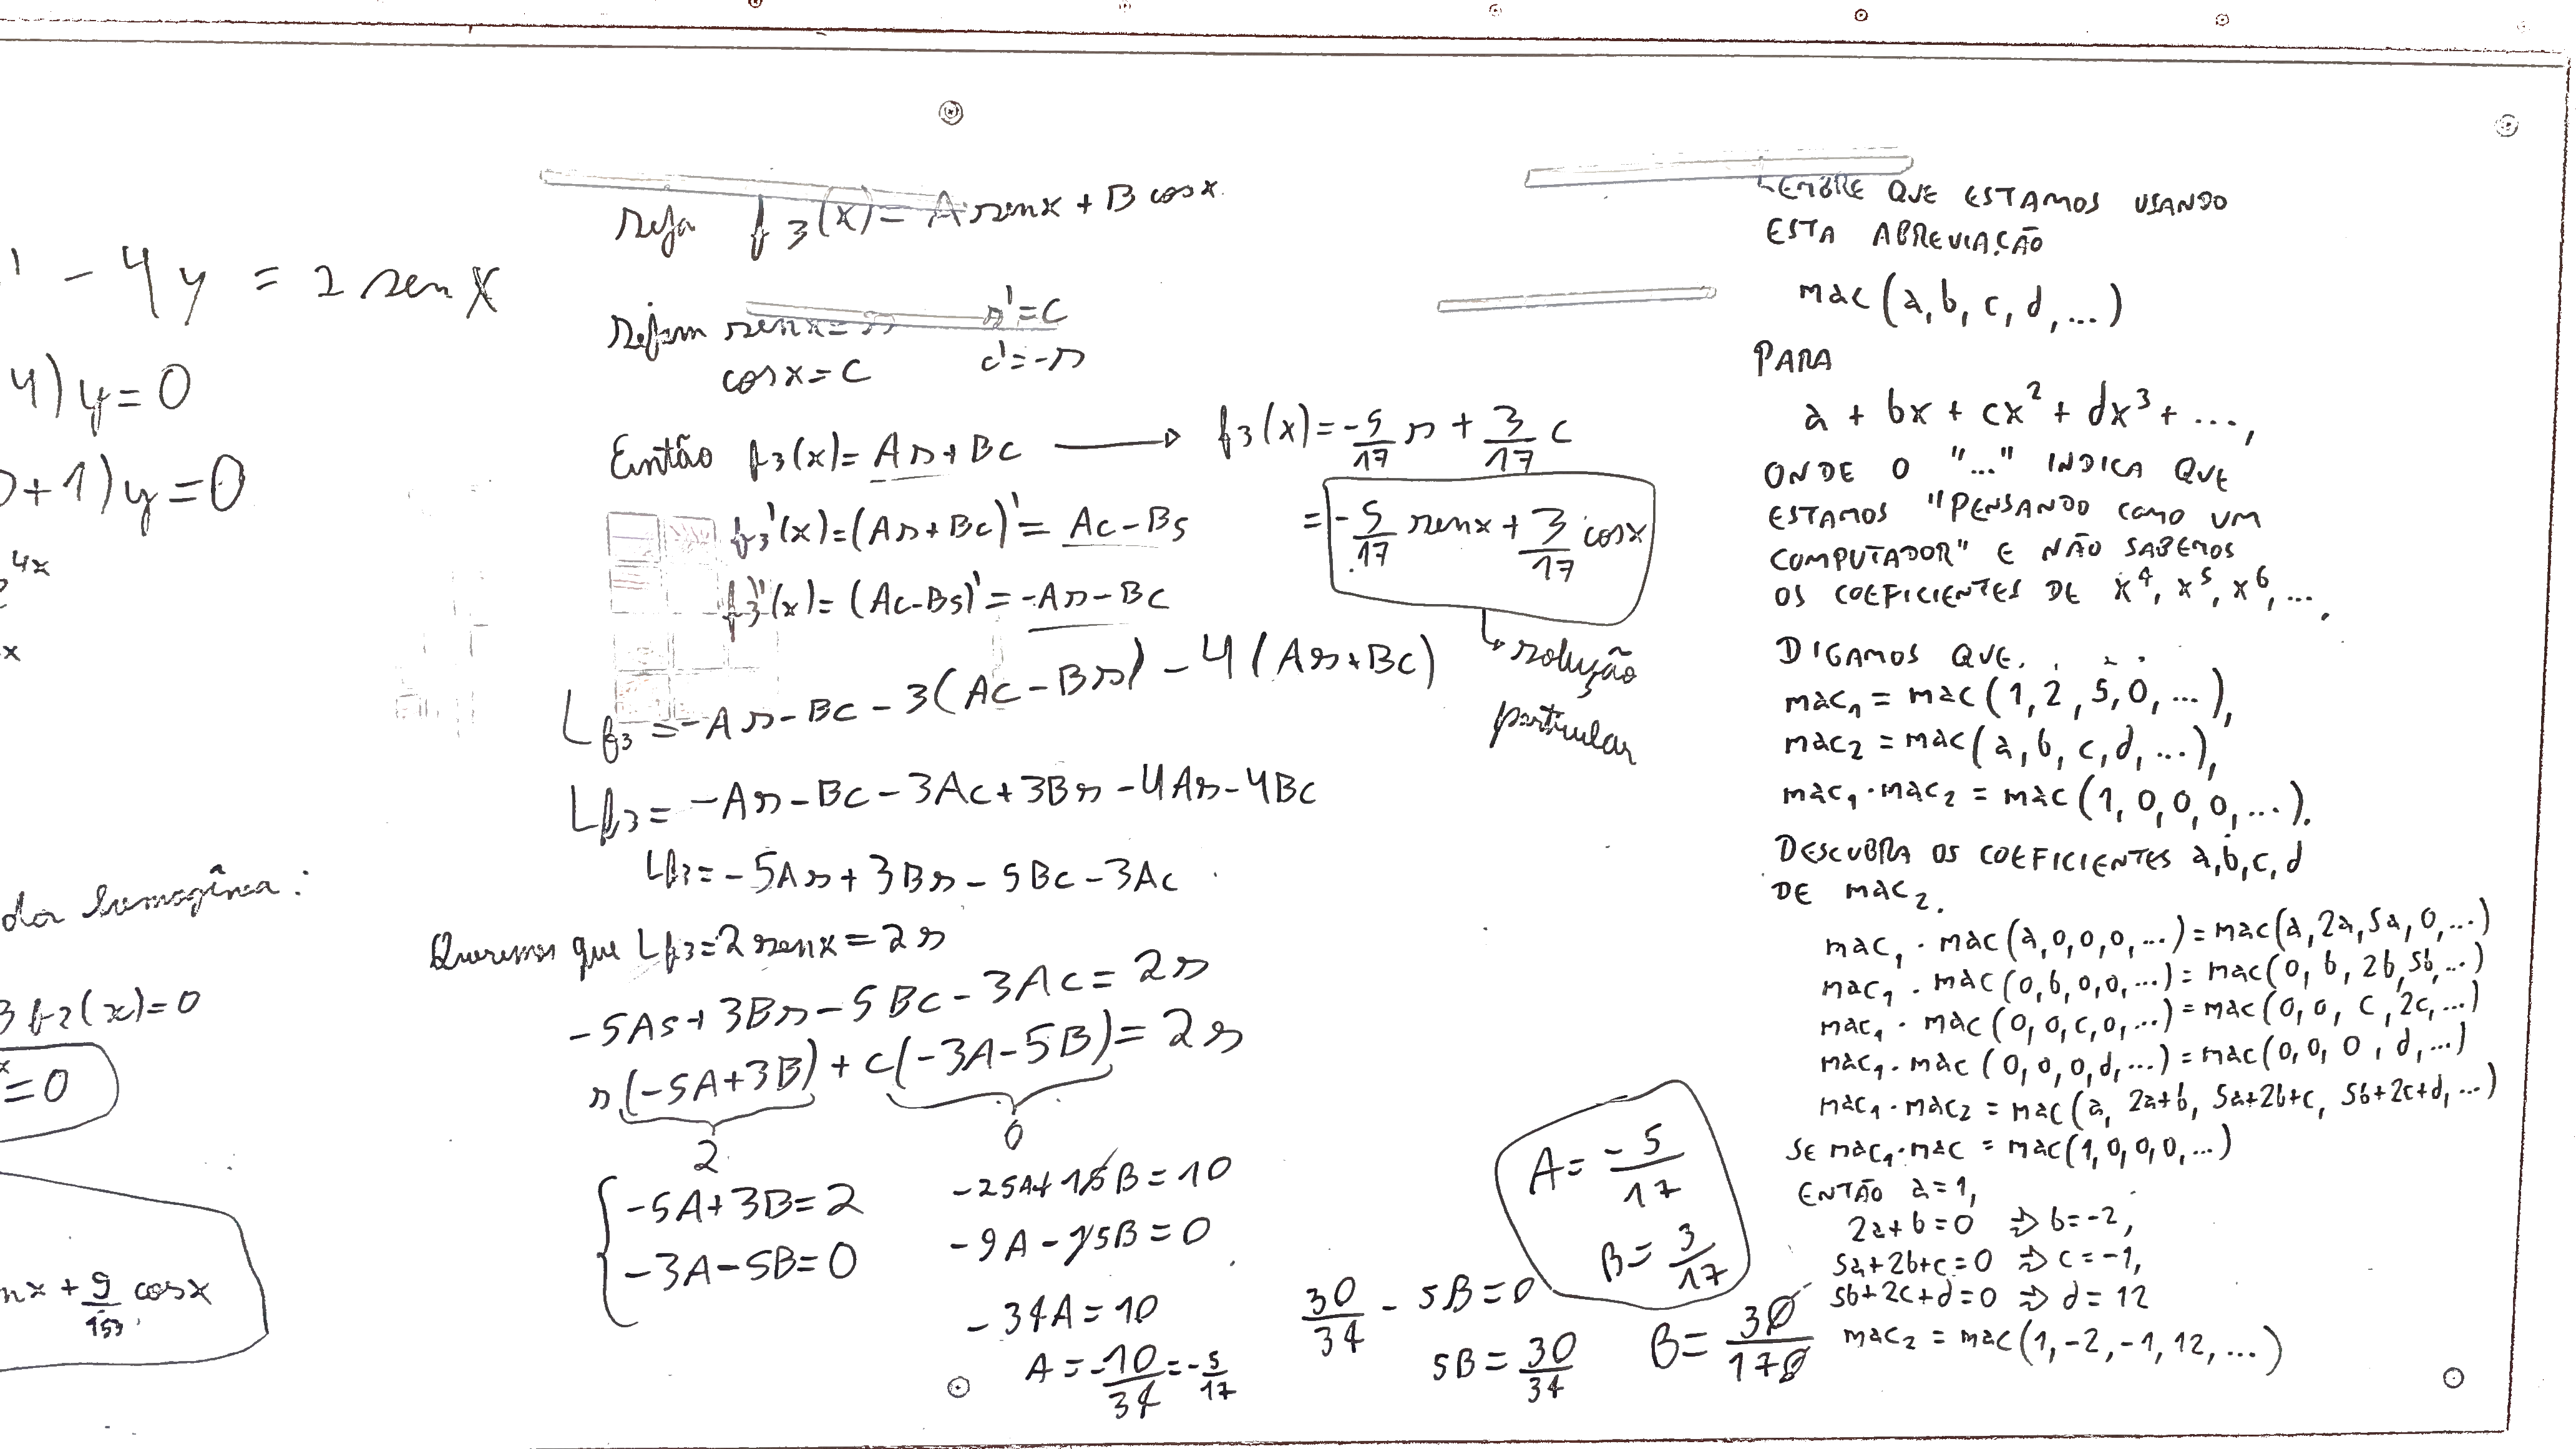 ' - 4y = 2 sen x
4)y=0
+1)y=0
4x
x
da homogênea:
3f2(x)=0
=0
nx + 9/153 cosx
Seja f3(x)= A senx + B cosx
Sejam senx=s s'=c
cosx=c c'=-s
Então f3(x)= As+Bc → f3(x)=-5/17 s + 3/17 c
f3'(x)=(As+Bc)'= Ac-Bs
= -5/17 senx + 3/17 cosx
f3''(x)= (Ac-Bs)'= -As-Bc
solução
particular
Lf3 = -As-Bc-3(Ac-Bs)-4(As+Bc)
Lf3= -As-Bc-3Ac+3Bs-4As-4Bc
Lf3= -5As+3Bs-5Bc-3Ac
Queremos que Lf3=2senx=2s
-5As+3Bs-5Bc-3Ac=2s
s(-5A+3B)+c(-3A-5B)=2s
2 0
-5A+3B=2
-3A-5B=0
-25A+15B=10
-9A-15B=0
-34A=10
A=-10/34=-5/17
30/34 - 5B=0
5B=30/34
B=30/170
A=-5/17
B=3/17
LEMBRE QUE ESTAMOS USANDO
ESTA ABREVIAÇÃO
mac(a,b,c,d,...)
PARA
a + bx + cx² + dx³ + ...,
ONDE O "..." INDICA QUE
ESTAMOS "PENSANDO COMO UM
COMPUTADOR" E NÃO SABEMOS
OS COEFICIENTES DE x⁴, x⁵, x⁶, ... .
DIGAMOS QUE
mac₁ = mac(1,2,5,0,...),
mac₂ = mac(a,b,c,d,...),
mac₁·mac₂ = mac(1,0,0,0,...).
DESCUBRA OS COEFICIENTES a,b,c,d
DE mac₂.
mac₁ · mac(a,0,0,0,...)=mac(a,2a,5a,0,...)
mac₁ · mac(0,b,0,0,...)=mac(0,b,2b,5b,...)
mac₁ · mac(0,0,c,0,...)=mac(0,0,c,2c,...)
mac₁ · mac(0,0,0,d,...)=mac(0,0,0,d,...)
mac₁ · mac₂ = mac(a, 2a+b, 5a+2b+c, 5b+2c+d,...)
SE mac₁·mac = mac(1,0,0,0,...)
ENTÃO a=1,
2a+b=0 ⇒ b=-2,
5a+2b+c=0 ⇒ c=-1,
5b+2c+d=0 ⇒ d=12
mac₂ = mac(1,-2,-1,12,...)